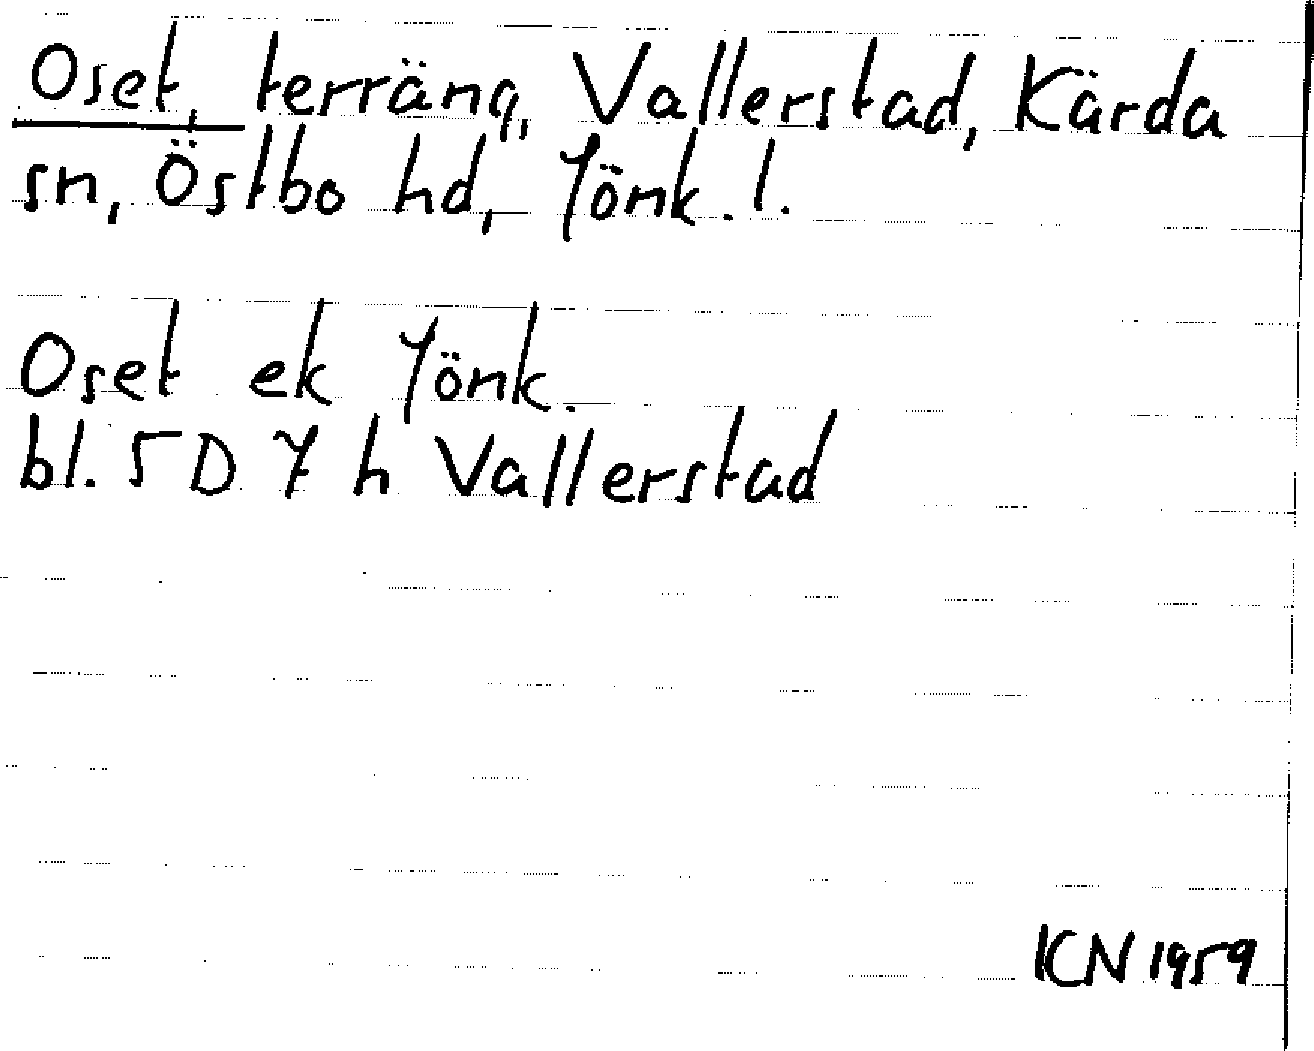 Oset, terräng, Vallerstad, Kärda
sn, Östbo hd, Jönk. l.
Oset ek Jönk.
bl. 5 D 7 h Vallerstad
KN 1959